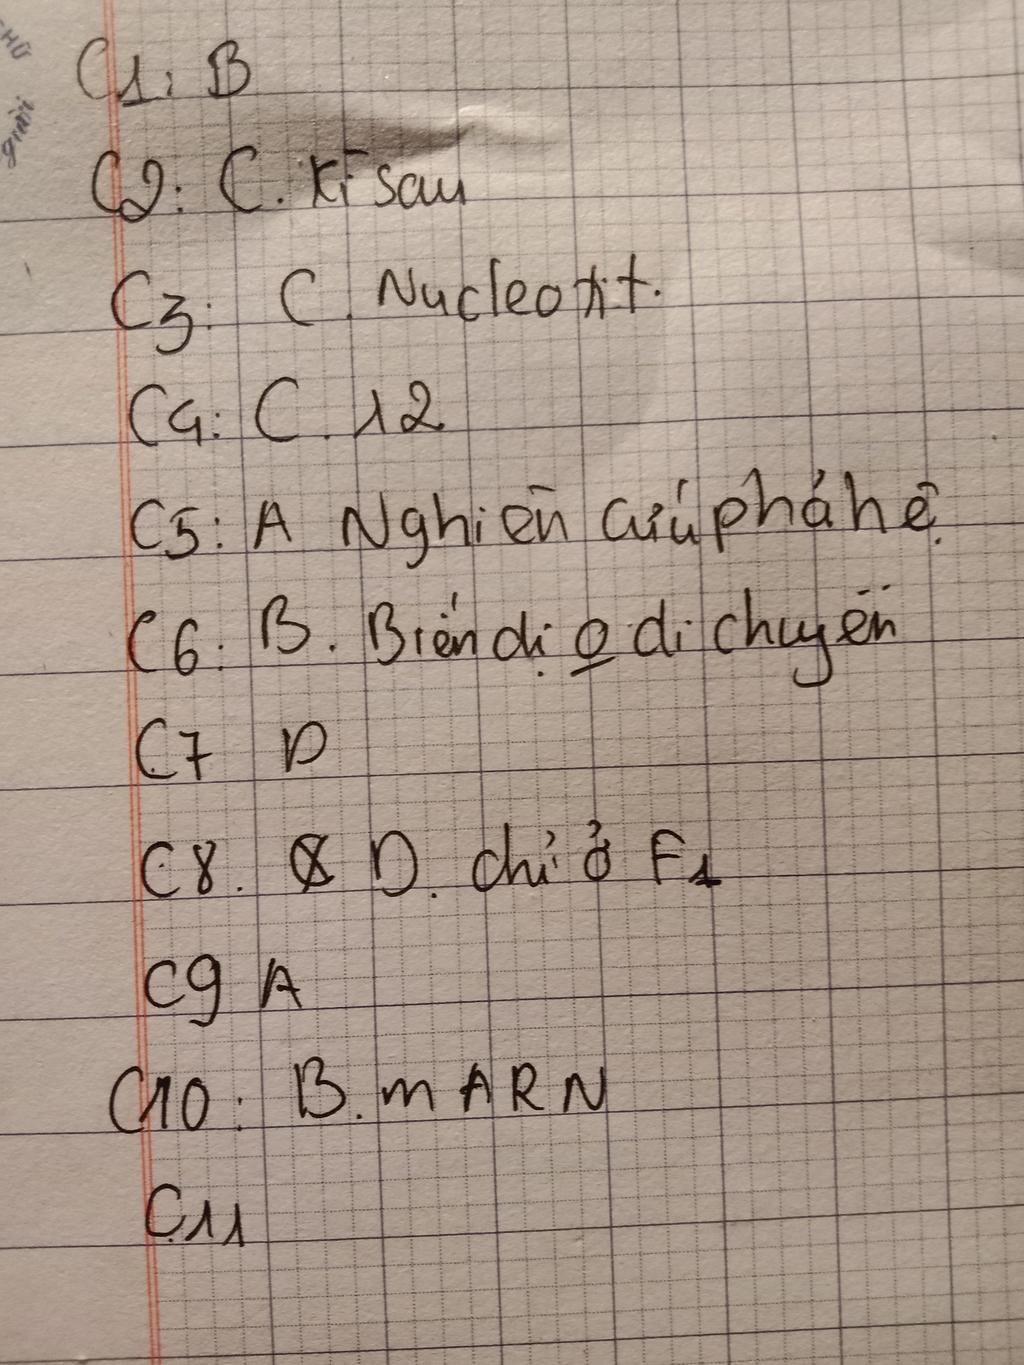 C1: B
C2: C. Kì sau
C3: C. Nucleotit.
C4: C. 12
C5: A Nghiên cứu phả hệ.
C6: B. Biến dị di chuyển
C7 D
C8. D. chỉ ở F1
C9 A
C10: B. mARN
C11